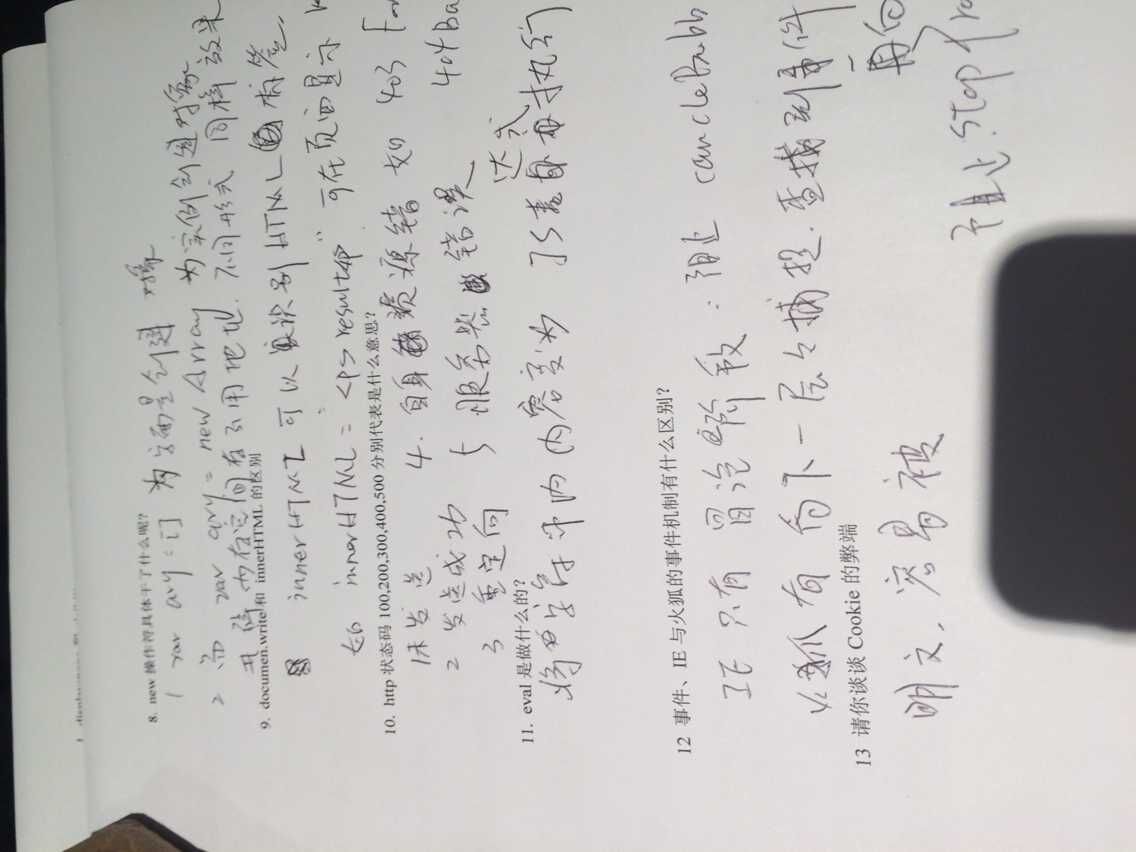 8. new 操作符具体干了什么呢?
1 var ary = [] 为字面量创建 对象
2 而 var ary = new Array 为实例创建对象
内存空间存引用地址. 不同形式 同样效果
9. documen.write 和 innerHTML 的区别
innerHTML 可以识别 HTML 标签.
如 innerHTML = "<p> result<p" 可在页面显示
10. http 状态码 100,200,300,400,500 分别代表是什么意思?
1 未发送 4. 自身 资源错 如 403 For
2 发送成功 5 服务器 错误 404 Ba
3 重定向
11. eval 是做什么的?
达式
将字符串内内容变为 JS表 执行
12 事件、IE 与火狐的事件机制有什么区别?
IE 只有 冒泡 阶段 : 阻止 cancleBubb
火狐有 向下一层々捕捉. 查找到事件
13 请你谈谈 Cookie 的弊端
再向
明文, 容易被
阻止 stop